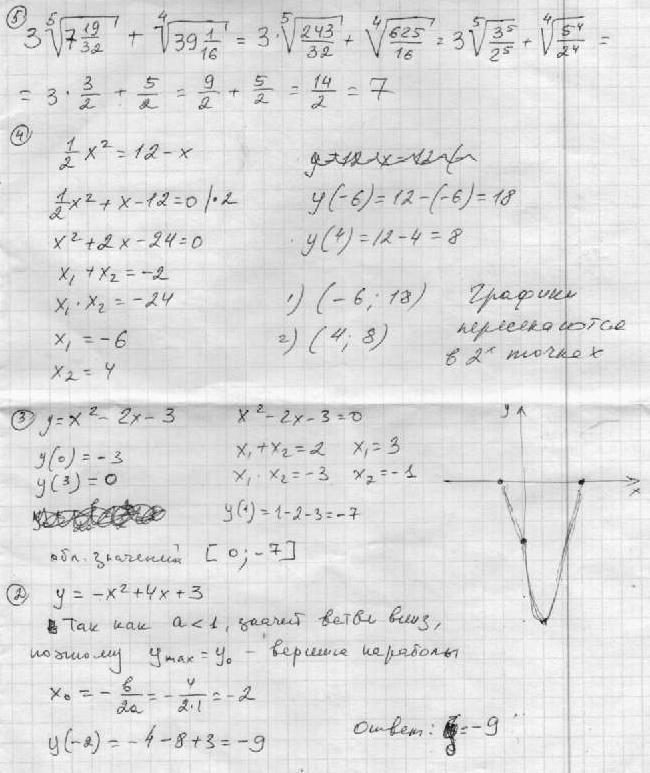 ⑤ 3 ⁵√(7 19/32) + ⁴√(39 1/16) = 3 · ⁵√(243/32) + ⁴√(625/16) = 3 ⁵√(3⁵/2⁵) + ⁴√(5⁴/2⁴) =
= 3 · 3/2 + 5/2 = 9/2 + 5/2 = 14/2 = 7
④
1/2 x² = 12 - x
1/2 x² + x - 12 = 0 | · 2
x² + 2x - 24 = 0
x₁ + x₂ = -2
x₁ · x₂ = -24
x₁ = -6
x₂ = 4
y(-6) = 12 - (-6) = 18
y(4) = 12 - 4 = 8
1) (-6; 18)
2) (4; 8)
Графики
пересекаются
в 2ˣ точках
③ y = x² - 2x - 3
y(0) = -3
y(3) = 0
x² - 2x - 3 = 0
x₁ + x₂ = 2 x₁ = 3
x₁ · x₂ = -3 x₂ = -1
y(1) = 1 - 2 - 3 = -7
обл. значений [0; -7]
y
x
② y = -x² + 4x + 3
Так как a < 1, значит ветви вниз,
поэтому yₘₐₓ = y₀ - вершина параболы
x₀ = - в/2a = - 4/(2·1) = -2
y(-2) = -4 - 8 + 3 = -9
Ответ: y = -9